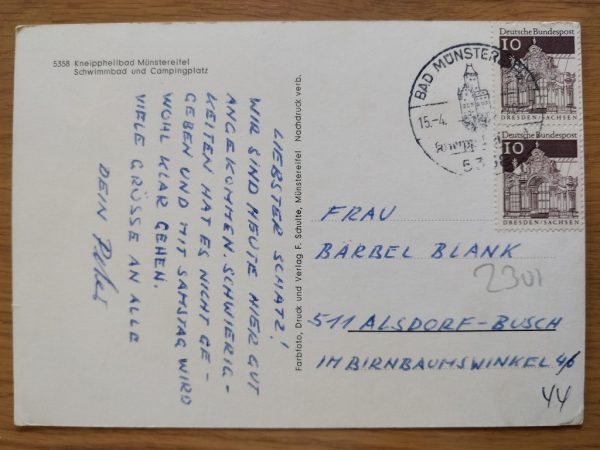 5358 Kneippheilbad Münstereifel
Schwimmbad und Campingplatz
LIEBSTER SCHATZ!
WIR SIND HEUTE HIER GUT
ANGEKOMMEN. SCHWIERIG-
KEITEN HAT ES NICHT GE-
GEBEN UND MIT SAMSTAG WIRD
WOHL KLAR GEHEN.
VIELE GRÜSSE AN ALLE
DEIN Peter
Farbfoto, Druck und Verlag F. Schulte, Münstereifel Nachdruck verb.
BAD MÜNSTEREIFEL
15.-4.
5358
Deutsche Bundespost
10
DRESDEN/SACHSEN
Deutsche Bundespost
10
DRESDEN/SACHSEN
FRAU
BÄRBEL BLANK
2301
511 ALSDORF-BUSCH
IM BIRNBAUMSWINKEL 46
44